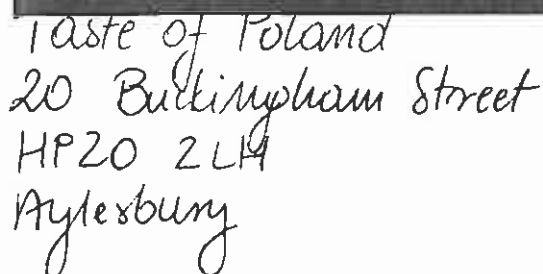 Taste of Poland
20 Buckingham Street
HP20 2LH
Aylesbury